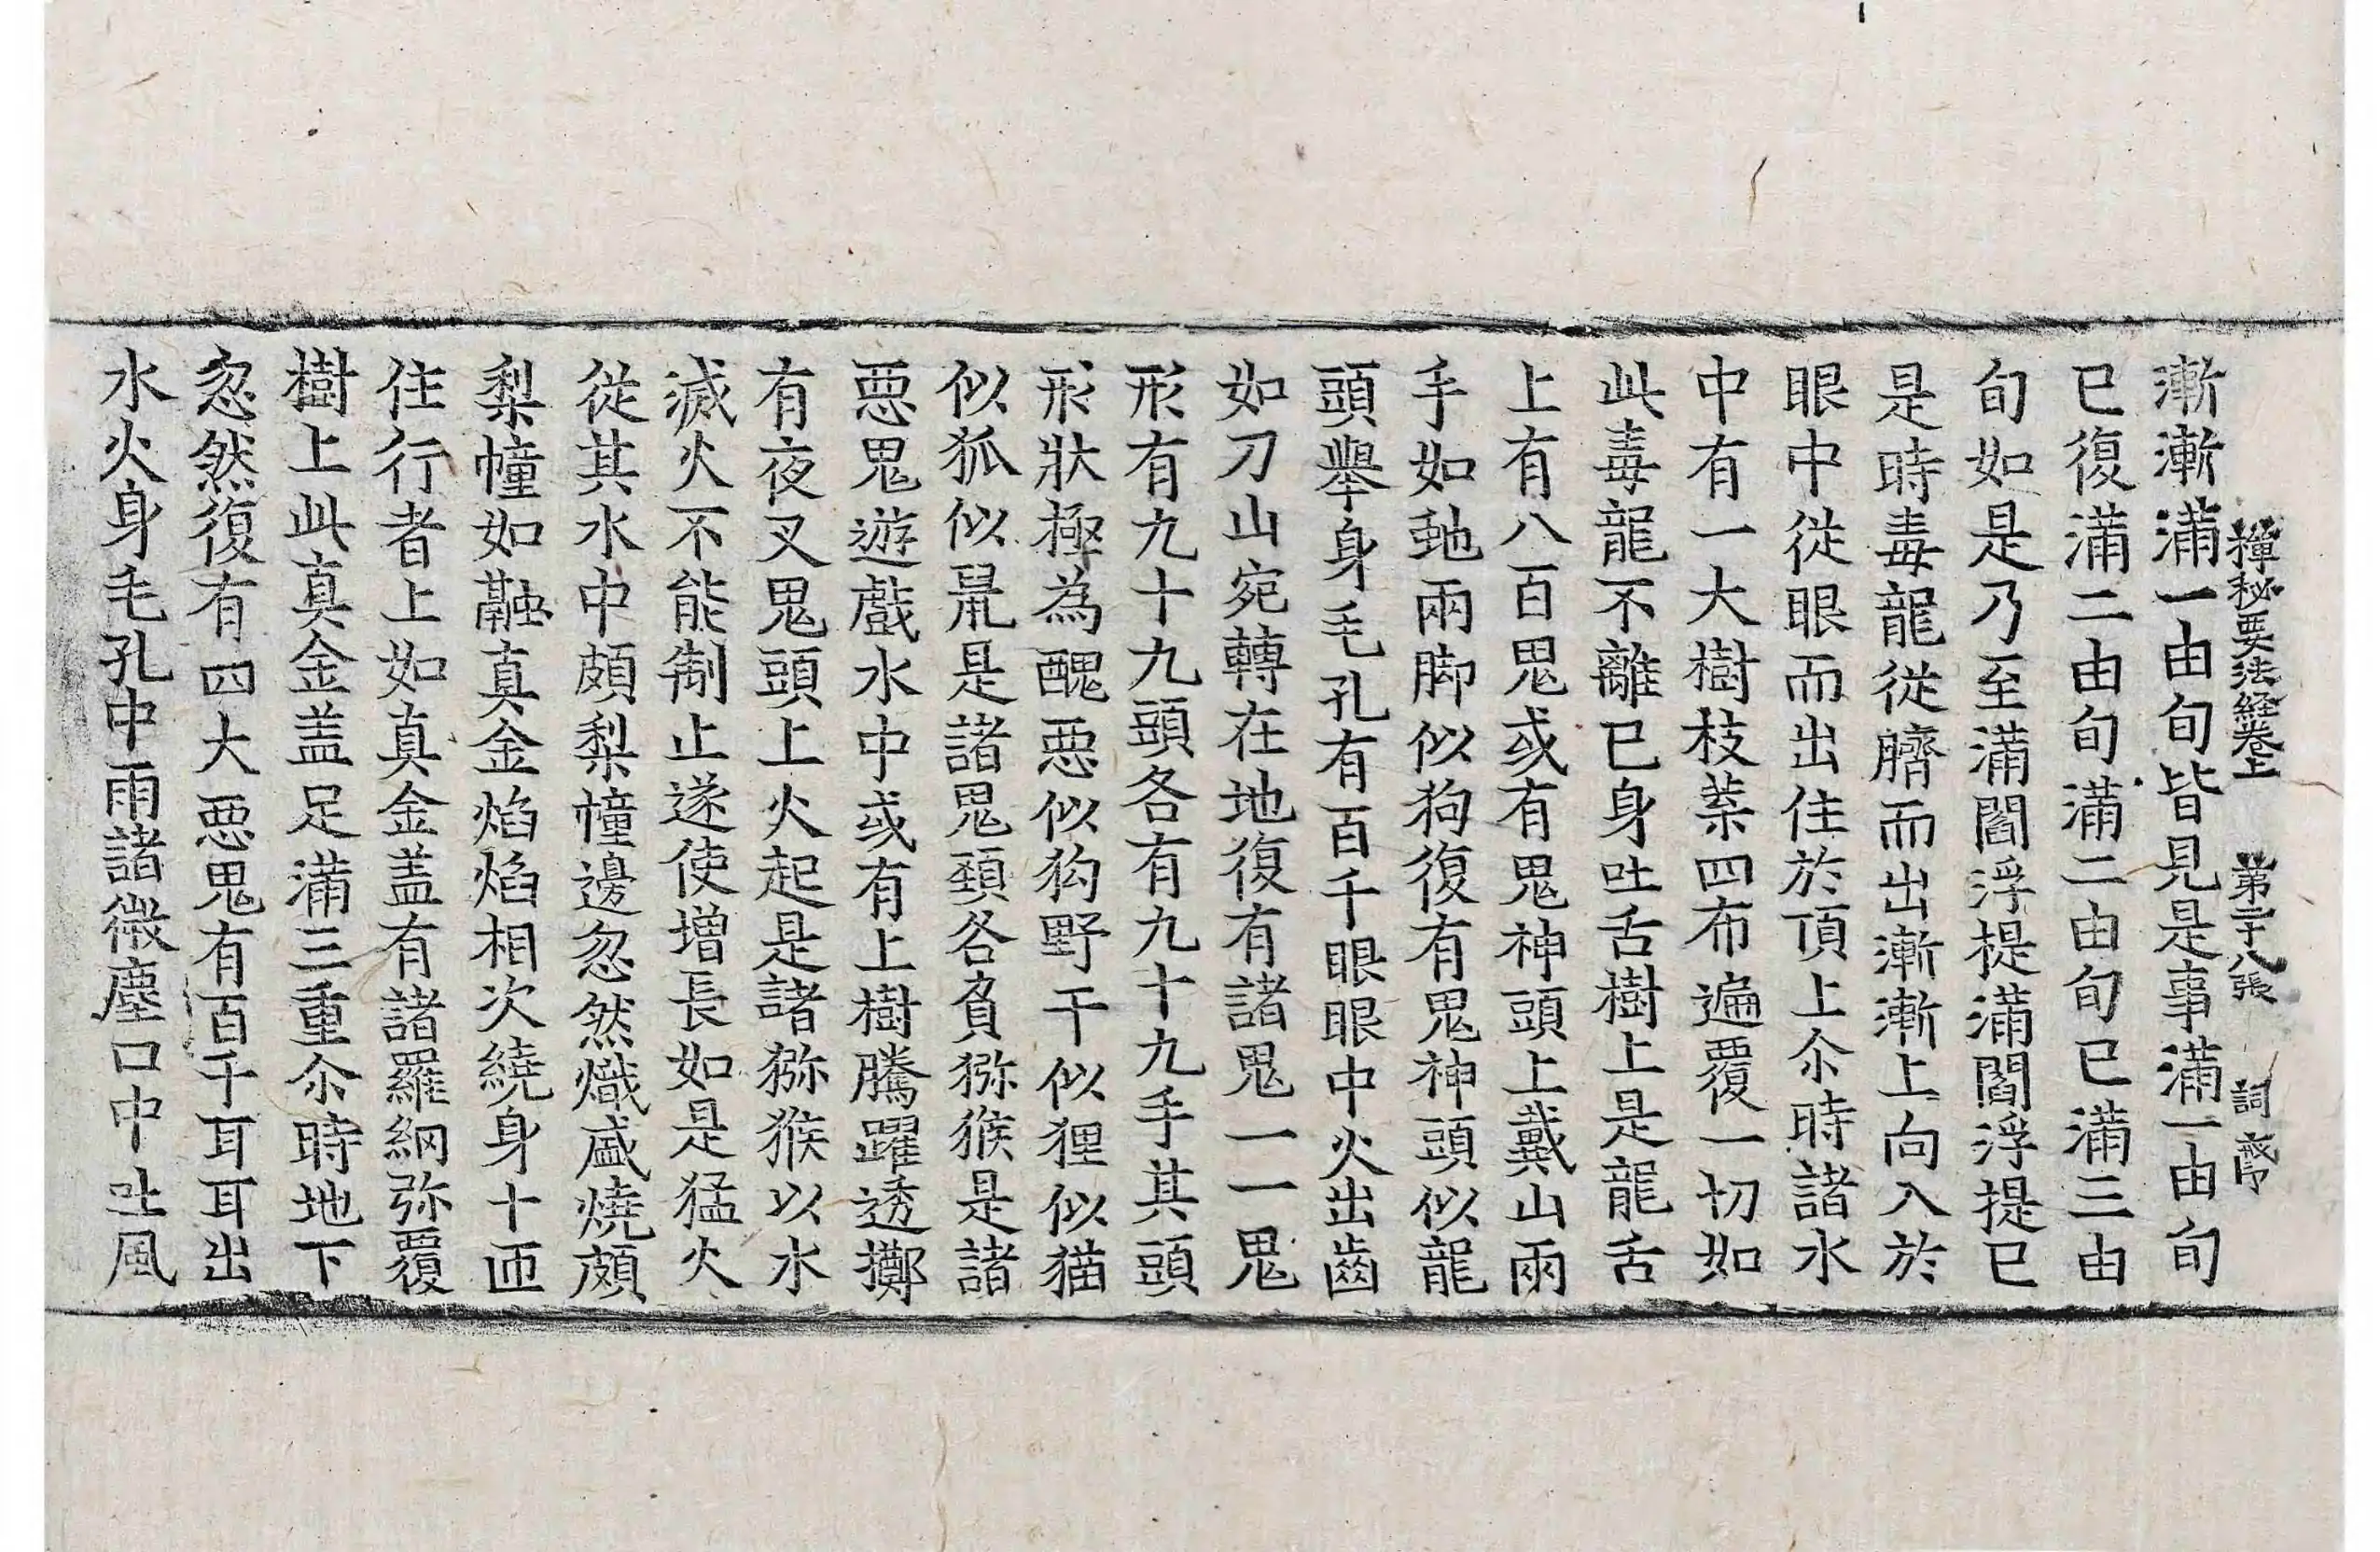 禪秘要法経卷上 第二十八張 詞
漸漸滿一由旬皆見是事滿一由旬
已復滿二由旬滿二由旬已滿三由
旬如是乃至滿閻浮提滿閻浮提已
是時毒龍從臍而出漸漸上向入於
眼中從眼而出住於頂上尒時諸水
中有一大樹枝葉四布遍覆一切如
此毒龍不離已身吐舌樹上是龍舌
上有八百鬼或有鬼神頭上戴山兩
手如虵兩脚似狗復有鬼神頭似龍
頭舉身毛孔有百千眼眼中火出齒
如刀山宛轉在地復有諸鬼一一鬼
形有九十九頭各有九十九手其頭
形狀極為醜惡似狗野干似狸似猫
似狐似鼠是諸鬼頸各負猕猴是諸
惡鬼遊戲水中或有上樹騰躍透擲
有夜叉鬼頭上火起是諸猕猴以水
滅火不能制止遂使增長如是猛火
從其水中頗梨幢邊忽然熾盛燒頗
梨幢如融真金焰焰相次繞身十匝
住行者上如真金盖有諸羅網弥覆
樹上此真金盖足滿三重尒時地下
忽然復有四大惡鬼有百千耳耳出
水火身毛孔中雨諸微塵口中吐風